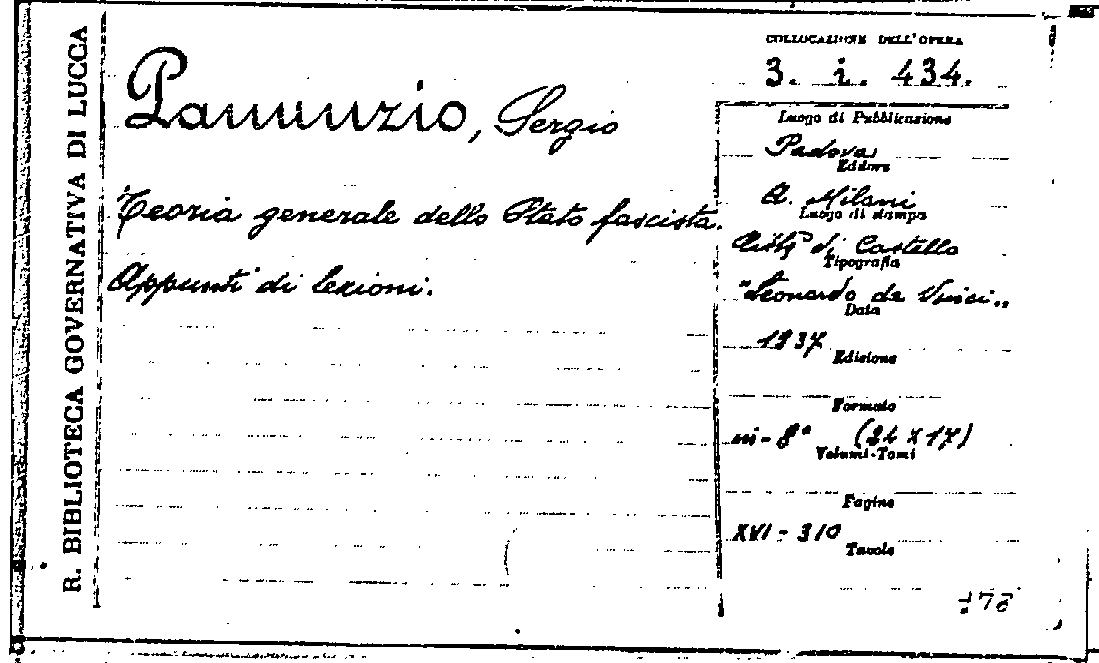 R. BIBLIOTECA GOVERNATIVA DI LUCCA
COLLOCAZIONE DELL'OPERA
3. i. 434.
Panunzio, Sergio
Teoria generale dello Stato fascista.
Appunti di lezioni.
Luogo di Pubblicazione
Padova
Editore
A. Milani
Luogo di stampa
Città di Castello
Tipografia
"Leonardo da Vinci"
Data
1937
Edizione
Formato
in-8° (24 x 17)
Volumi-Tomi
Pagine
XVI - 310
Tavole